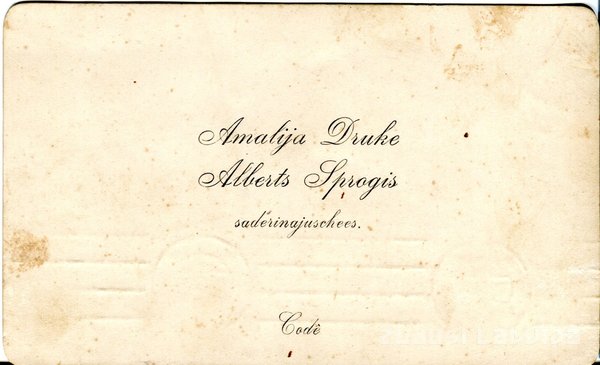 Amalija Druke
Alberts Sprogis
sadērinajuschees.
Codē